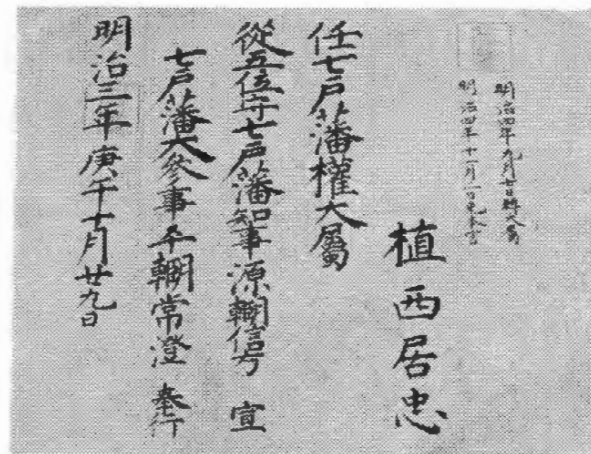 明治四年九月廿日轉大属
明治四年十一月一日免本官
植西居忠
任七戸藩權大屬
從五位守七戸藩知事源朝臣信方 宣
七戸藩大參事平朝臣常澄 奉行
明治三年庚午十月廿九日